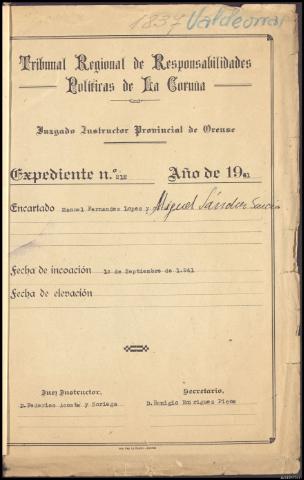 1837 Valdeorras
Tribunal Regional de Responsabilidades
Políticas de La Coruña
Juzgado Instructor Provincial de Orense
Expediente n.º 212 Año de 1941
Encartado Manuel Fernandez Lopez y Miguel Sánchez García
Fecha de incoación 10 de Septiembre de 1.941
Fecha de elevación
Juez Instructor, Secretario,
D. Federico Acosta y Noriega D. Remigio Rodriguez